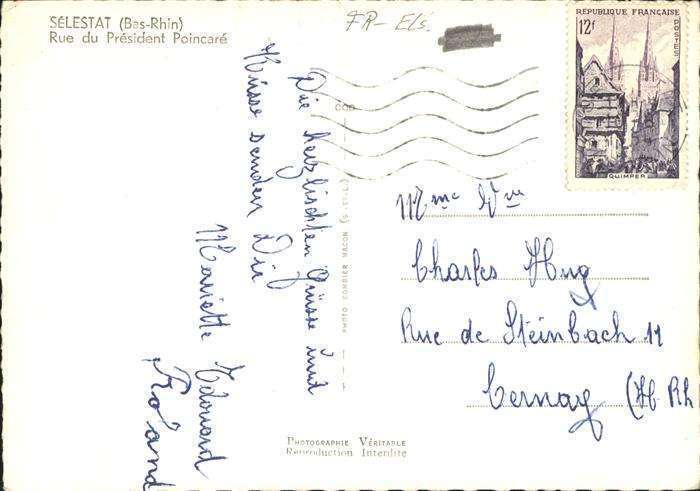 SÉLESTAT (Bas-Rhin)
Rue du Président Poincaré
FR - Els.
RÉPUBLIQUE FRANÇAISE
12f
POSTES
QUIMPER
Die herzlischten Grüsse und
Küsse senden Dir
Mariette Edouard
Roland
PHOTO COMBIER MACON (S.-ET-L.)
Mme Vve
Charles Hug
Rue de Steinbach 11
Cernay (H. Rh
PHOTOGRAPHIE VÉRITABLE
Reproduction Interdite